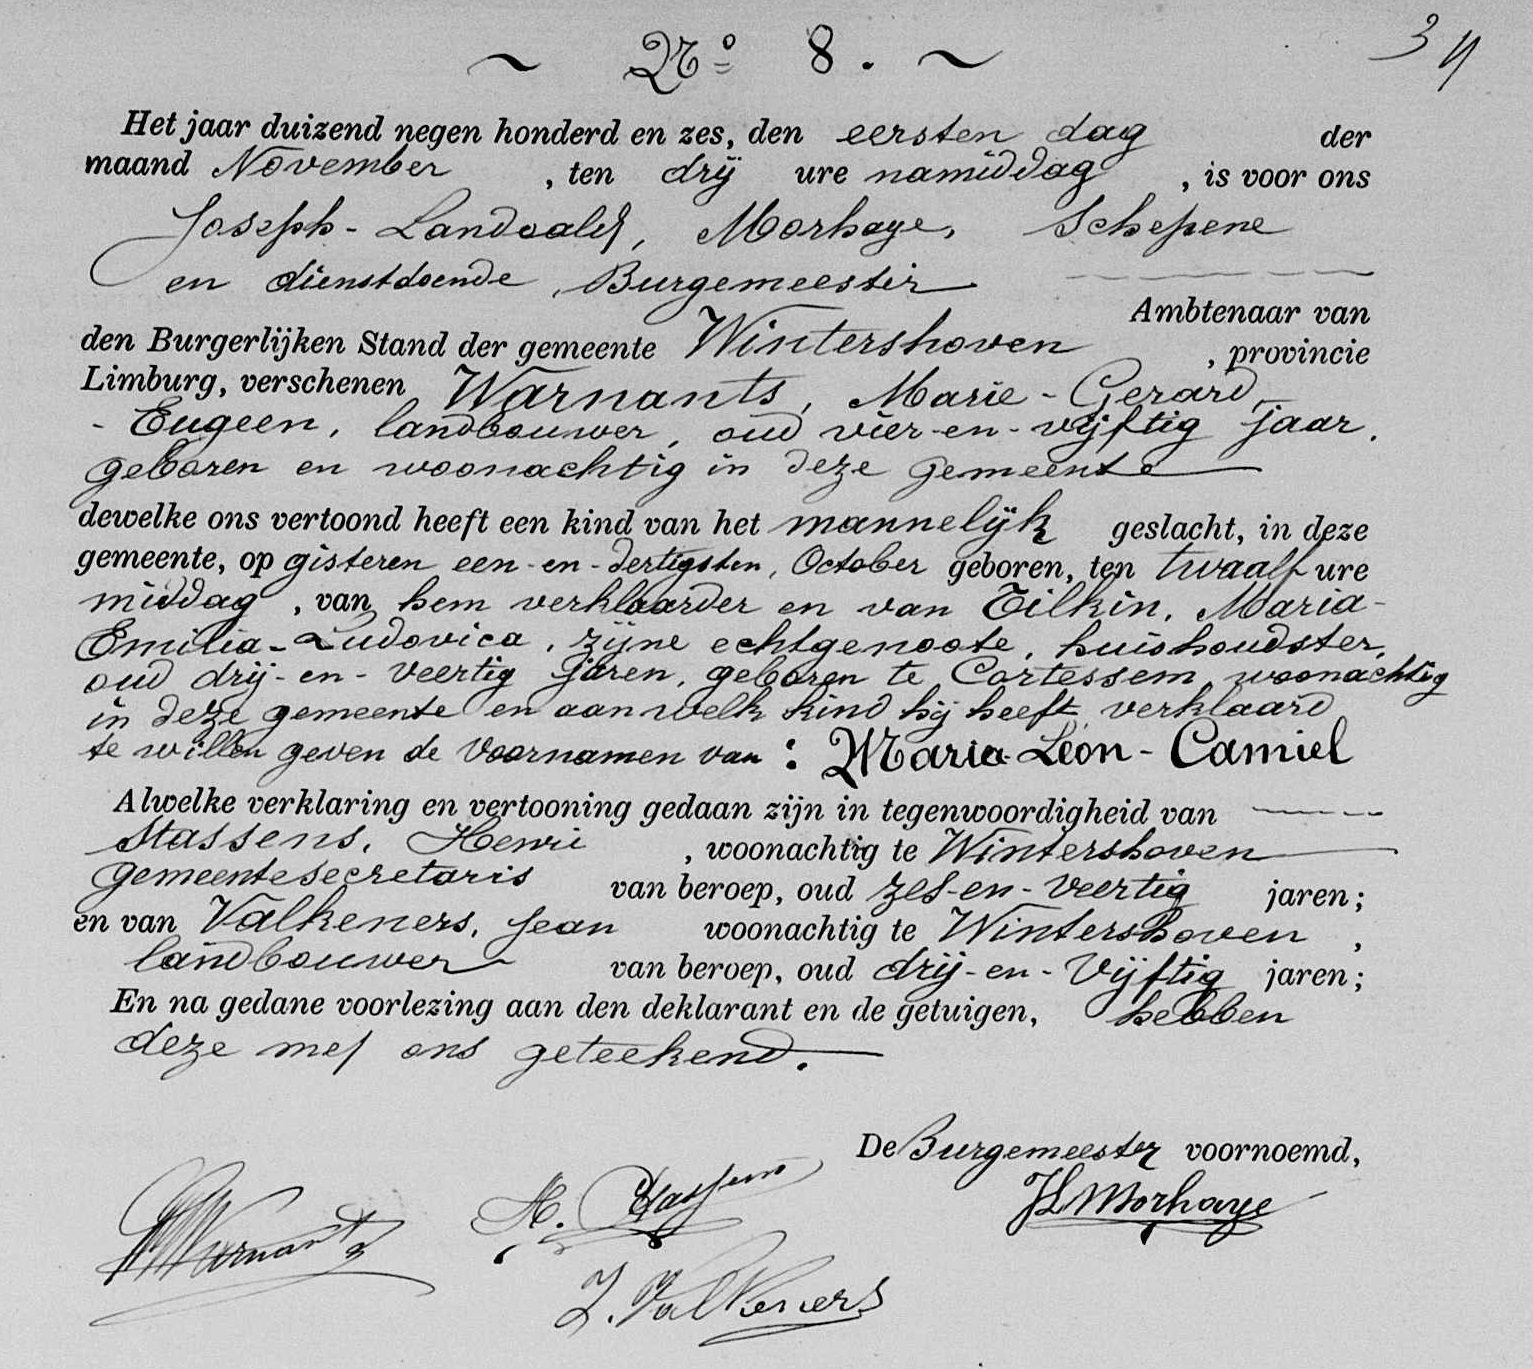 ~ No 8. ~
Het jaar duizend negen honderd en zes, den eersten dag der
maand November , ten drij ure namiddag , is voor ons
Joseph - Landoald, Morhaye, Schepene
en dienstdoende, Burgemeester
Ambtenaar van
den Burgerlijken Stand der gemeente Wintershoven , provincie
Limburg, verschenen Warnants, Marie - Gerard
- Eugeen, landbouwer, oud vier-en-vijftig jaar,
geboren en woonachtig in deze gemeente
dewelke ons vertoond heeft een kind van het mannelijk geslacht, in deze
gemeente, op gisteren een-en-dertigsten, October geboren, ten twaalf ure
middag , van hem verklaarder en van Tilkin, Maria-
Emilia-Ludovica, zijne echtgenoote, huishoudster,
oud drij-en-veertig jaren, geboren te Cortessem, woonachtig
in deze gemeente en aan welk kind hij heeft verklaard
te willen geven de Voornamen van : Maria-Léon-Camiel
Alwelke verklaring en vertooning gedaan zijn in tegenwoordigheid van
Stassens, Henri , woonachtig te Wintershoven
gemeentesecretaris van beroep, oud zes-en-veertig jaren;
en van Valkeners, Jean woonachtig te Wintershoven ,
landbouwer van beroep, oud drij-en-Vijftig jaren;
En na gedane voorlezing aan den deklarant en de getuigen, hebben
deze met ons geteekend.
De Burgemeester voornoemd,
Warnants H. Stassens JL Morhaye
J. Valkeners